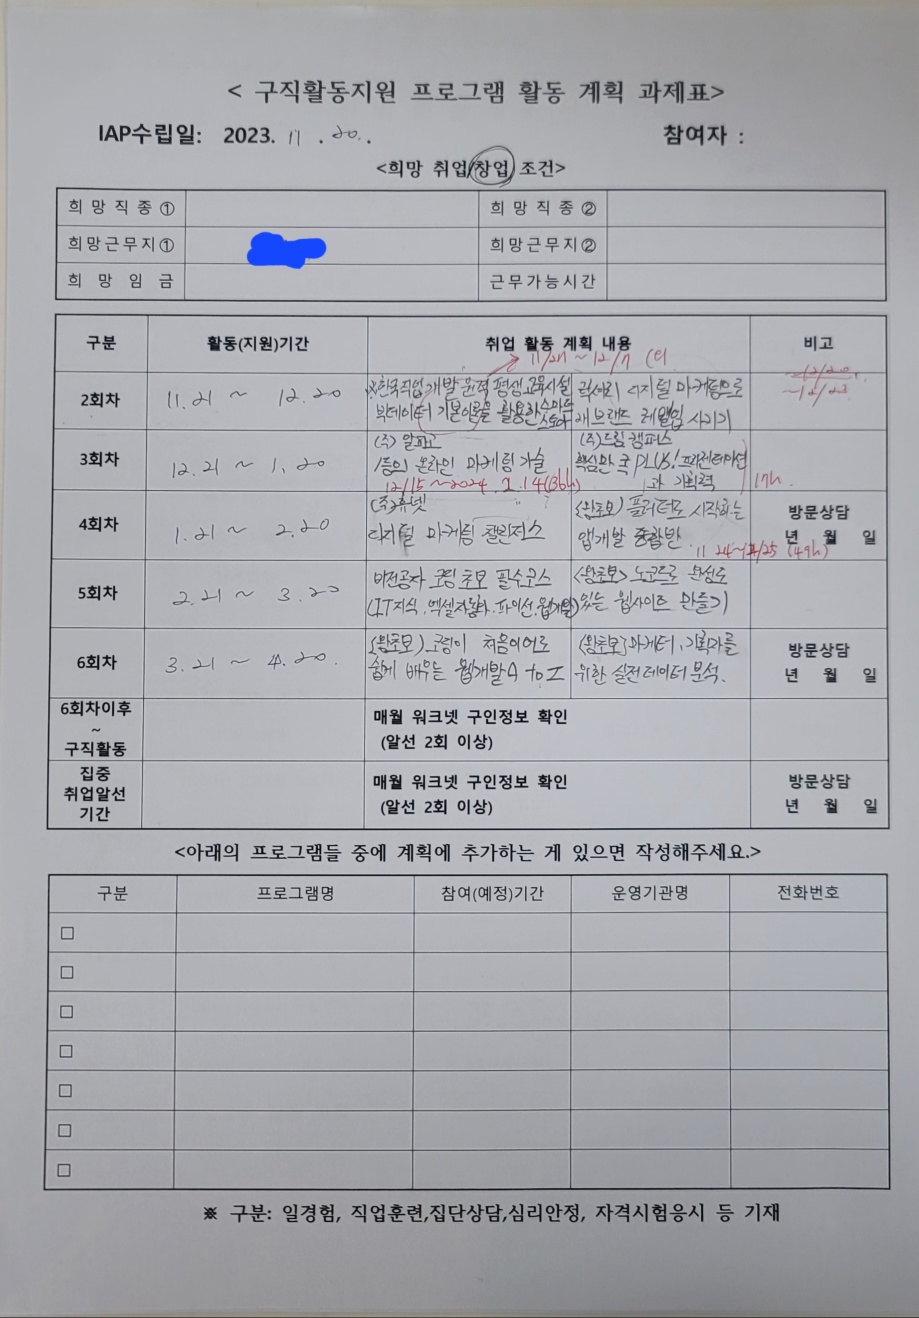 < 구직활동지원 프로그램 활동 계획 과제표>
IAP수립일: 2023. 11 . 20. 참여자 :
<희망 취업/창업 조건>
희망직종① 희망직종②
희망근무지① 희망근무지②
희망임금 근무가능시간
구분 활동(지원)기간 취업 활동 계획 내용 비고
11/27 ~ 12/7
~12/20.
~12/23
2회차 11.21 ~ 12.20
개발 평생교육시설 디지털 마케팅으로
빅데이터 기본이론을 활용한 브랜드 레벨업 시키기
3회차 12.21 ~ 1.20
(주) 알파코 (주)드림캠퍼스
1등의 온라인 마케팅 기술 핵심만 콕 PLUS! 프리젠테이션
과 기획력
12/15 ~ 2024. 1.14(36h) 17h.
4회차 1.21 ~ 2.20
(주)휴넷 <왕초보> 플러터로 시작하는
디지털 마케팅 챌린저스 앱개발 종합반.
(49h)
방문상담
년 월 일
5회차 2.21 ~ 3.20
비전공자 코딩 초보 필수코스 <왕초보> 노코드로 완성도
(IT지식.엑셀자동화.파이썬.웹개발) 있는 웹사이트 만들기
6회차 3.21 ~ 4.20.
<왕초보> 코딩이 처음이어도 <왕초보>마케터, 기획자를
쉽게 배우는 웹개발 A to Z 위한 실전 데이터 분석.
방문상담
년 월 일
6회차이후
~
구직활동
매월 워크넷 구인정보 확인
(알선 2회 이상)
집중
취업알선
기간
매월 워크넷 구인정보 확인
(알선 2회 이상)
방문상담
년 월 일
<아래의 프로그램들 중에 계획에 추가하는 게 있으면 작성해주세요.>
구분 프로그램명 참여(예정)기간 운영기관명 전화번호
□
□
□
□
□
□
□
※ 구분: 일경험, 직업훈련,집단상담,심리안정, 자격시험응시 등 기재